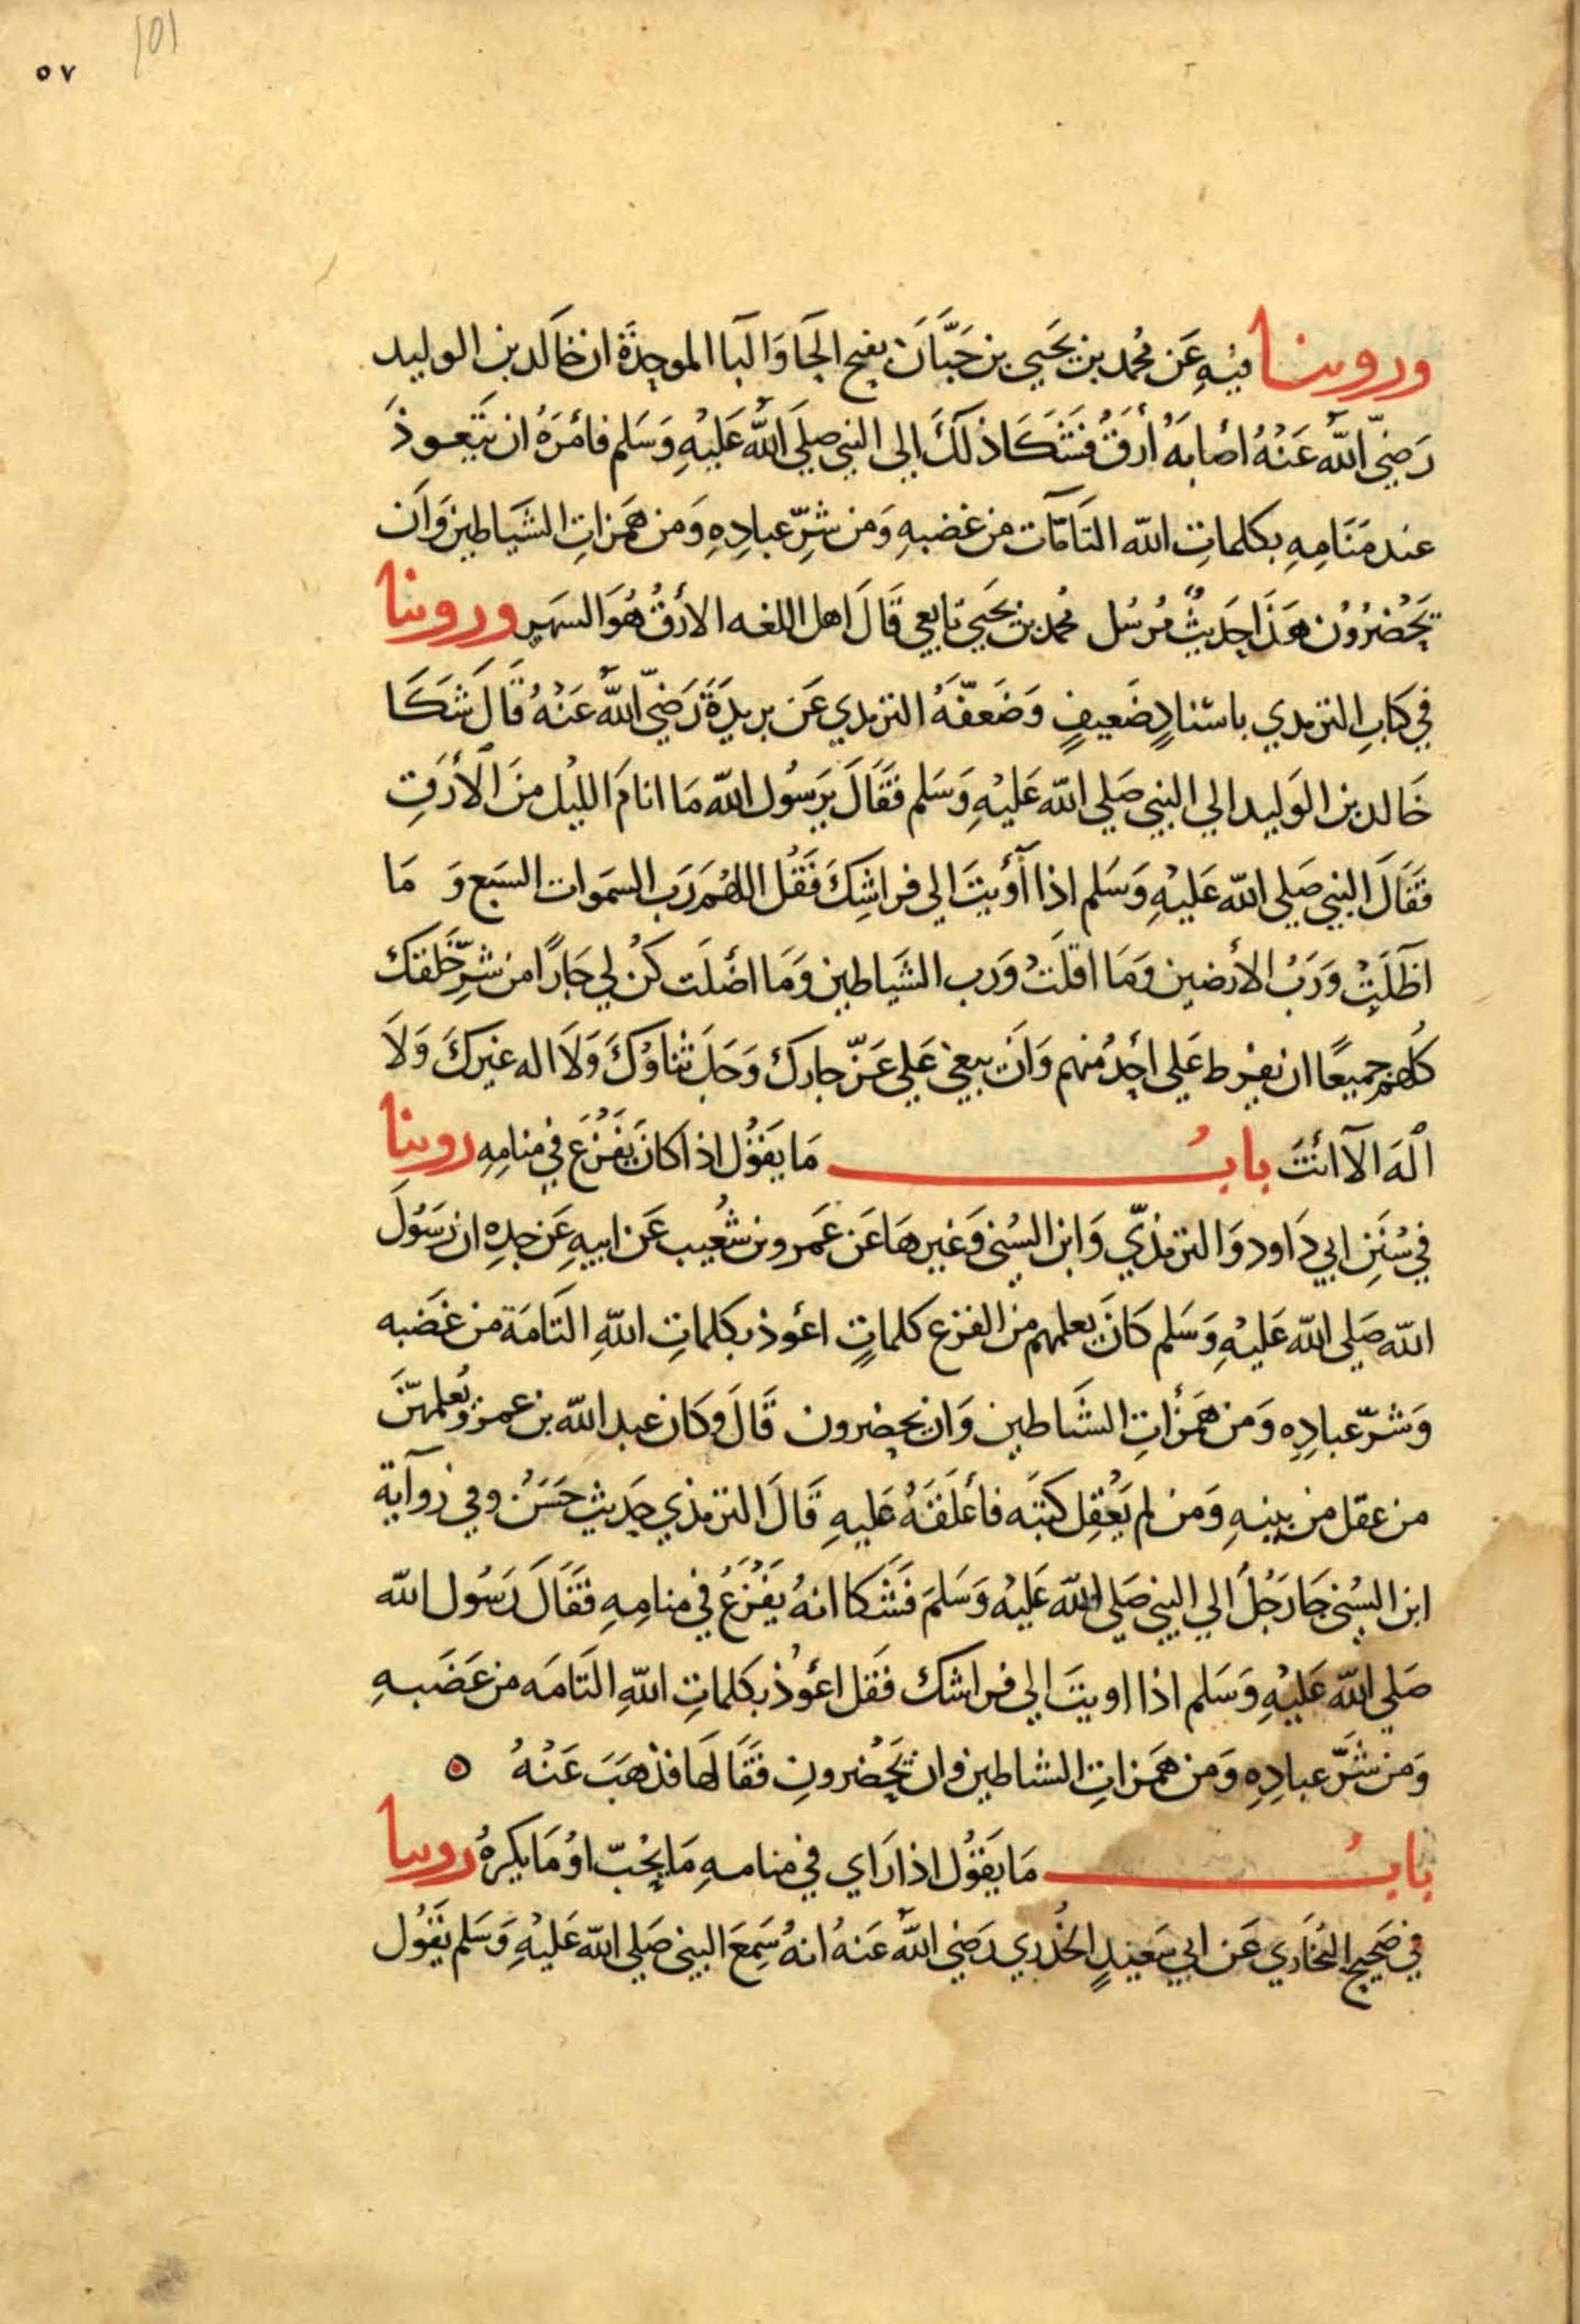 ٥٧
101
وروينا فيهِ عَن محُمد بن يَحَيي بن حَبَّانَ بفتح الحَا وَالبَا الموحدَة ان خَالد بن الوليد
رَضيّ اللّهُ عَنْهُ اصْابهُ أرَقٌ فَشَكَا ذلكَ اِلي النبي صلي اللّه عَليْهِ وَسَلم فامَرَهُ ان يَتَعوذَ
عند مَنَامِهِ بكلماتِ الله التَامَّات من غضبهِ وَمن شرِّ عبادِهِ وَمن همَزاتِ الشَياطين وَانَ
يَحْضُرُوْن هَذَا حَديثٌ مُرسُل محُمد بن يحَيَي تابعي قَالَ اهل اللغه الارَقُ هُوَ السهر وروينا
في كتابِ الترمدي باسْنادٍ ضَعيفٍ وَضَعفّهُ الترمدي عَن بريدَةَ رَضيّ اللّهُ عَنْهُ قَالَ شَكَا
خَالد بن الوَليد الي النبي صَلي الله عَليْهِ وَسَلم فَقَالَ يَرَسُول الله مَا انامَ الليْل منَ الأرَقِ
فَقَالَ النبي صَلي الله عَليهِ وَسَلم اِذا أوَيتَ الي فراشِكَ فَقُل اللهُمَ رَبَ السمَوات السَبع وَ مَا
اظَلَتْ وَرَبْ الأرضين وَمَا اقَلتْ وَرب الشيَاطين وَمَا اضَلَت كنْ لي جَارًا من شرِّ خَلقك
كلُهمُ جميعًا ان يفرط عَلي احَدُ منهم وَانَ يبغي عَلي عَزّ جارك وَجَلَ ثناوُكَ وَلَا اله غيركَ وَلَا
الهَ الَا انْتَ بابُ مَا يَقوُل اذا كانَ يَفْزَعُ في منامِهِ روينا
في سُنَنِ ابي دَاود وَالترمذيّ وَابن السُني وَغيرهَا عَن عَمرو بن شعُيب عَن ابيهِ عَن جدِهِ ان رَسَوُلَ
الله صَلي الله عَليْهِ وَسَلم كَانَ يعلمهم من الفزع كلماتٍ اعُوذ بكلماتِ اللّهِ التَامَة من غضَبه
وَشرّ عبادِهِ وَمن همَزَاتِ الشَياطين وَان يحضرون قَالَ وكَان عبد الله بن عمرو يُعلمهّنَ
من عقل من بنيهِ وَمن لم يَعْقِل كتبَه فاعْلَقَهُ عَليهِ قَالَ الترمذي حَديث حَسَنٌ وفي روايَة
ابن السُني جَا رَجُلَ الي النبي صَلي الله عَليْه وَسَلمَ فَشَكا انهُ يَفْزَعُ في منامِهِ فَقَالَ رَسُول الله
صَلي الله عَليْهِ وَسَلم اذا اويتَ الي فراشك فَقل اعُوذُ بكلماتِ اللّهِ التَامَه من غضَبهِ
وَمن شَرّ عبادِهِ وَمن همَزاتِ الشياطين وان يَحْضرونِ فَقَالهَا فذهَبَ عَنْهُ ٥
بابُ مَا يَقوُل اذا رَاي في منامهِ مَا يحُبّ اوْ مَا يكرهُ روينا
في صَحَيح البُخَاري عَن ابي سَعيدٍ الخُدْري رَضي اللّهُ عَنهُ انهُ سَمِعَ النبي صَلي الله عَليْهِ وَسَلم يقَوُل